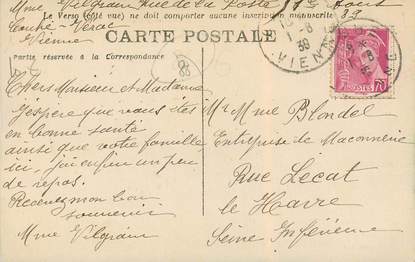 Mme Vilgrain Rue de la Poste
Le Verso (côté vue) ne doit comporter aucune inscription manuscrite
Couhé-Vérac
Vienne
CARTE POSTALE
Partie réservée à la Correspondance
Chers Monsieur et Madame
J'espère que vous êtes
en bonne santé
ainsi que votre famille
ici, j'ai enfin un peu
de repos.
Recevez mon bon
souvenir
Mme Vilgrain
VIENNE
POSTES
Mr Mme Blondel
Entreprise de Maconnerie
Rue Lecat
le Havre
Seine Inférieure